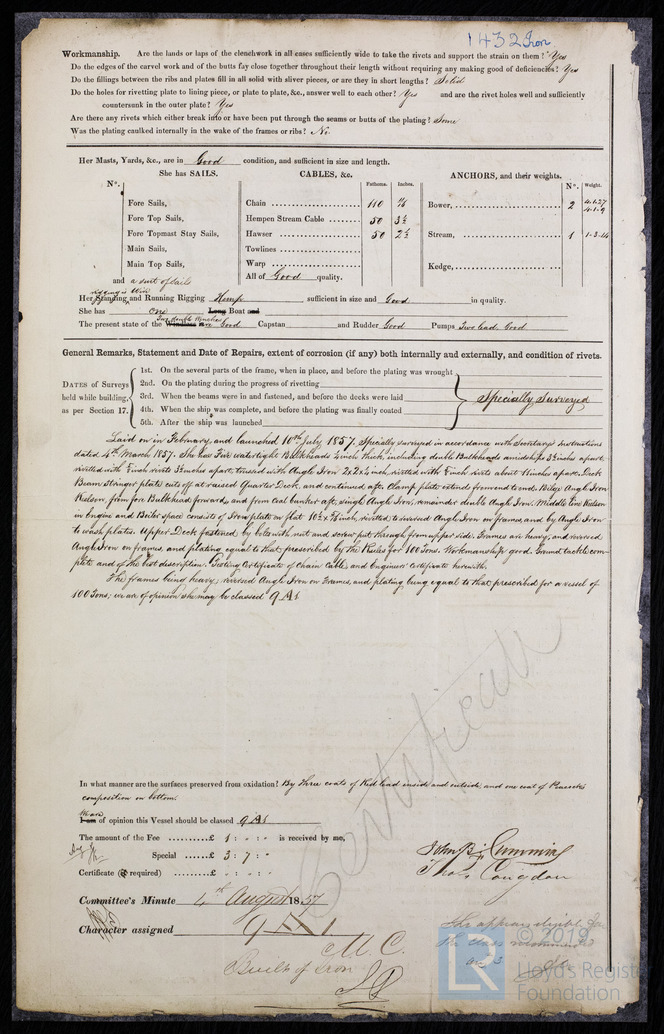 1432 Iron
Workmanship. Are the lands or laps of the clenchwork in all cases sufficiently wide to take the rivets and support the strain on them? Yes
Do the edges of the carvel work and of the butts fay close together throughout their length without requiring any making good of deficiencies? Yes
Do the fillings between the ribs and plates fill in all solid with sliver pieces, or are they in short lengths? Solid
Do the holes for rivetting plate to lining piece, or plate to plate, &c., answer well to each other? Yes and are the rivet holes well and sufficiently
countersunk in the outer plate? Yes
Are there any rivets which either break into or have been put through the seams or butts of the plating? Some
Was the plating caulked internally in the wake of the frames or ribs? No
Her Masts, Yards, &c., are in Good condition, and sufficient in size and length.
She has SAILS. CABLES, &c. ANCHORS, and their weights.
N°. Fathoms. Inches. N°. Weight.
Fore Sails, Chain 110 7/8 Bower, 2 4-1-9
Fore Top Sails, Hempen Stream Cable 50 3½
Fore Topmast Stay Sails, Hawser 50 2½ Stream, 1 1-3-14
Main Sails, Towlines
Main Top Sails, Warp Kedge,
and a suit of Sails All of Good quality.
Rigging is Wire
Her Standing and Running Rigging Hemp sufficient in size and Good in quality.
She has one Long Boat and
Two double Winches
The present state of the Windlass is are Good Capstan and Rudder Good Pumps Two lead Good
General Remarks, Statement and Date of Repairs, extent of corrosion (if any) both internally and externally, and condition of rivets.
DATES of Surveys held while building, as per Section 17.
1st. On the several parts of the frame, when in place, and before the plating was wrought
2nd. On the plating during the progress of rivetting
3rd. When the beams were in and fastened, and before the decks were laid
4th. When the ship was complete, and before the plating was finally coated
5th. After the ship was launched
Specially Surveyed
Laid on in February, and launched 10th July 1857, Specially surveyed in accordance with Secretarys instructions
dated 4th March 1857. She has Four watertight Bulkheads ¼ inch thick, including double Bulkheads amidships 3½ inches apart,
rivetted with inch rivets 3½ inches apart, tended with Angle Iron 2x2x¼ inch, rivetted with inch rivets about inches apart. Deck
Beam Stringer plate cuts off at raised Quarter Deck, and continued aft. Clamp plate extends from end to end. Bilge Angle Iron
Kelson, from fore Bulkhead forward, and from coal bunker aft, single Angle Iron, remainder double Angle Iron. Middle line Kelson
in Engine and Boiler space consists of Iron plate on flat inch, rivetted to reversed Angle Iron on frames, and by Angle Iron
to wash plates. Upper Deck fastened by bolts with nut and screw put through from upper side. Frames are heavy, and reversed
Angle Iron on frames, and plating equal to that prescribed by the Rules for 100 Tons. Workmanship good. Ground tackle com-
plete and of the best description. Testing Certificate of Chain Cable and Engineers Certificate herewith.
The frames being heavy; reversed Angle Iron on Frames, and plating being equal to that prescribed for a vessel of
100 Tons; we are of opinion she may be classed 9 A1
Certificate
In what manner are the surfaces preserved from oxidation? By three coats of Red lead inside and outside, and one coat of Peacocks
composition on bottom.
We are
I am of opinion this Vessel should be classed 9 A1
The amount of the Fee £ 1 : - : - is received by me,
Special £ 3 : 7 : -
Certificate (if required) £ - : - : -
John B. Cummins
Thos. Congdon
Committee's Minute 4th August 1857
Character assigned 9 A 1
M. C.
Built of Iron
She appears eligible for
the class recommended
© 2019
LR
Lloyd's Register
Foundation